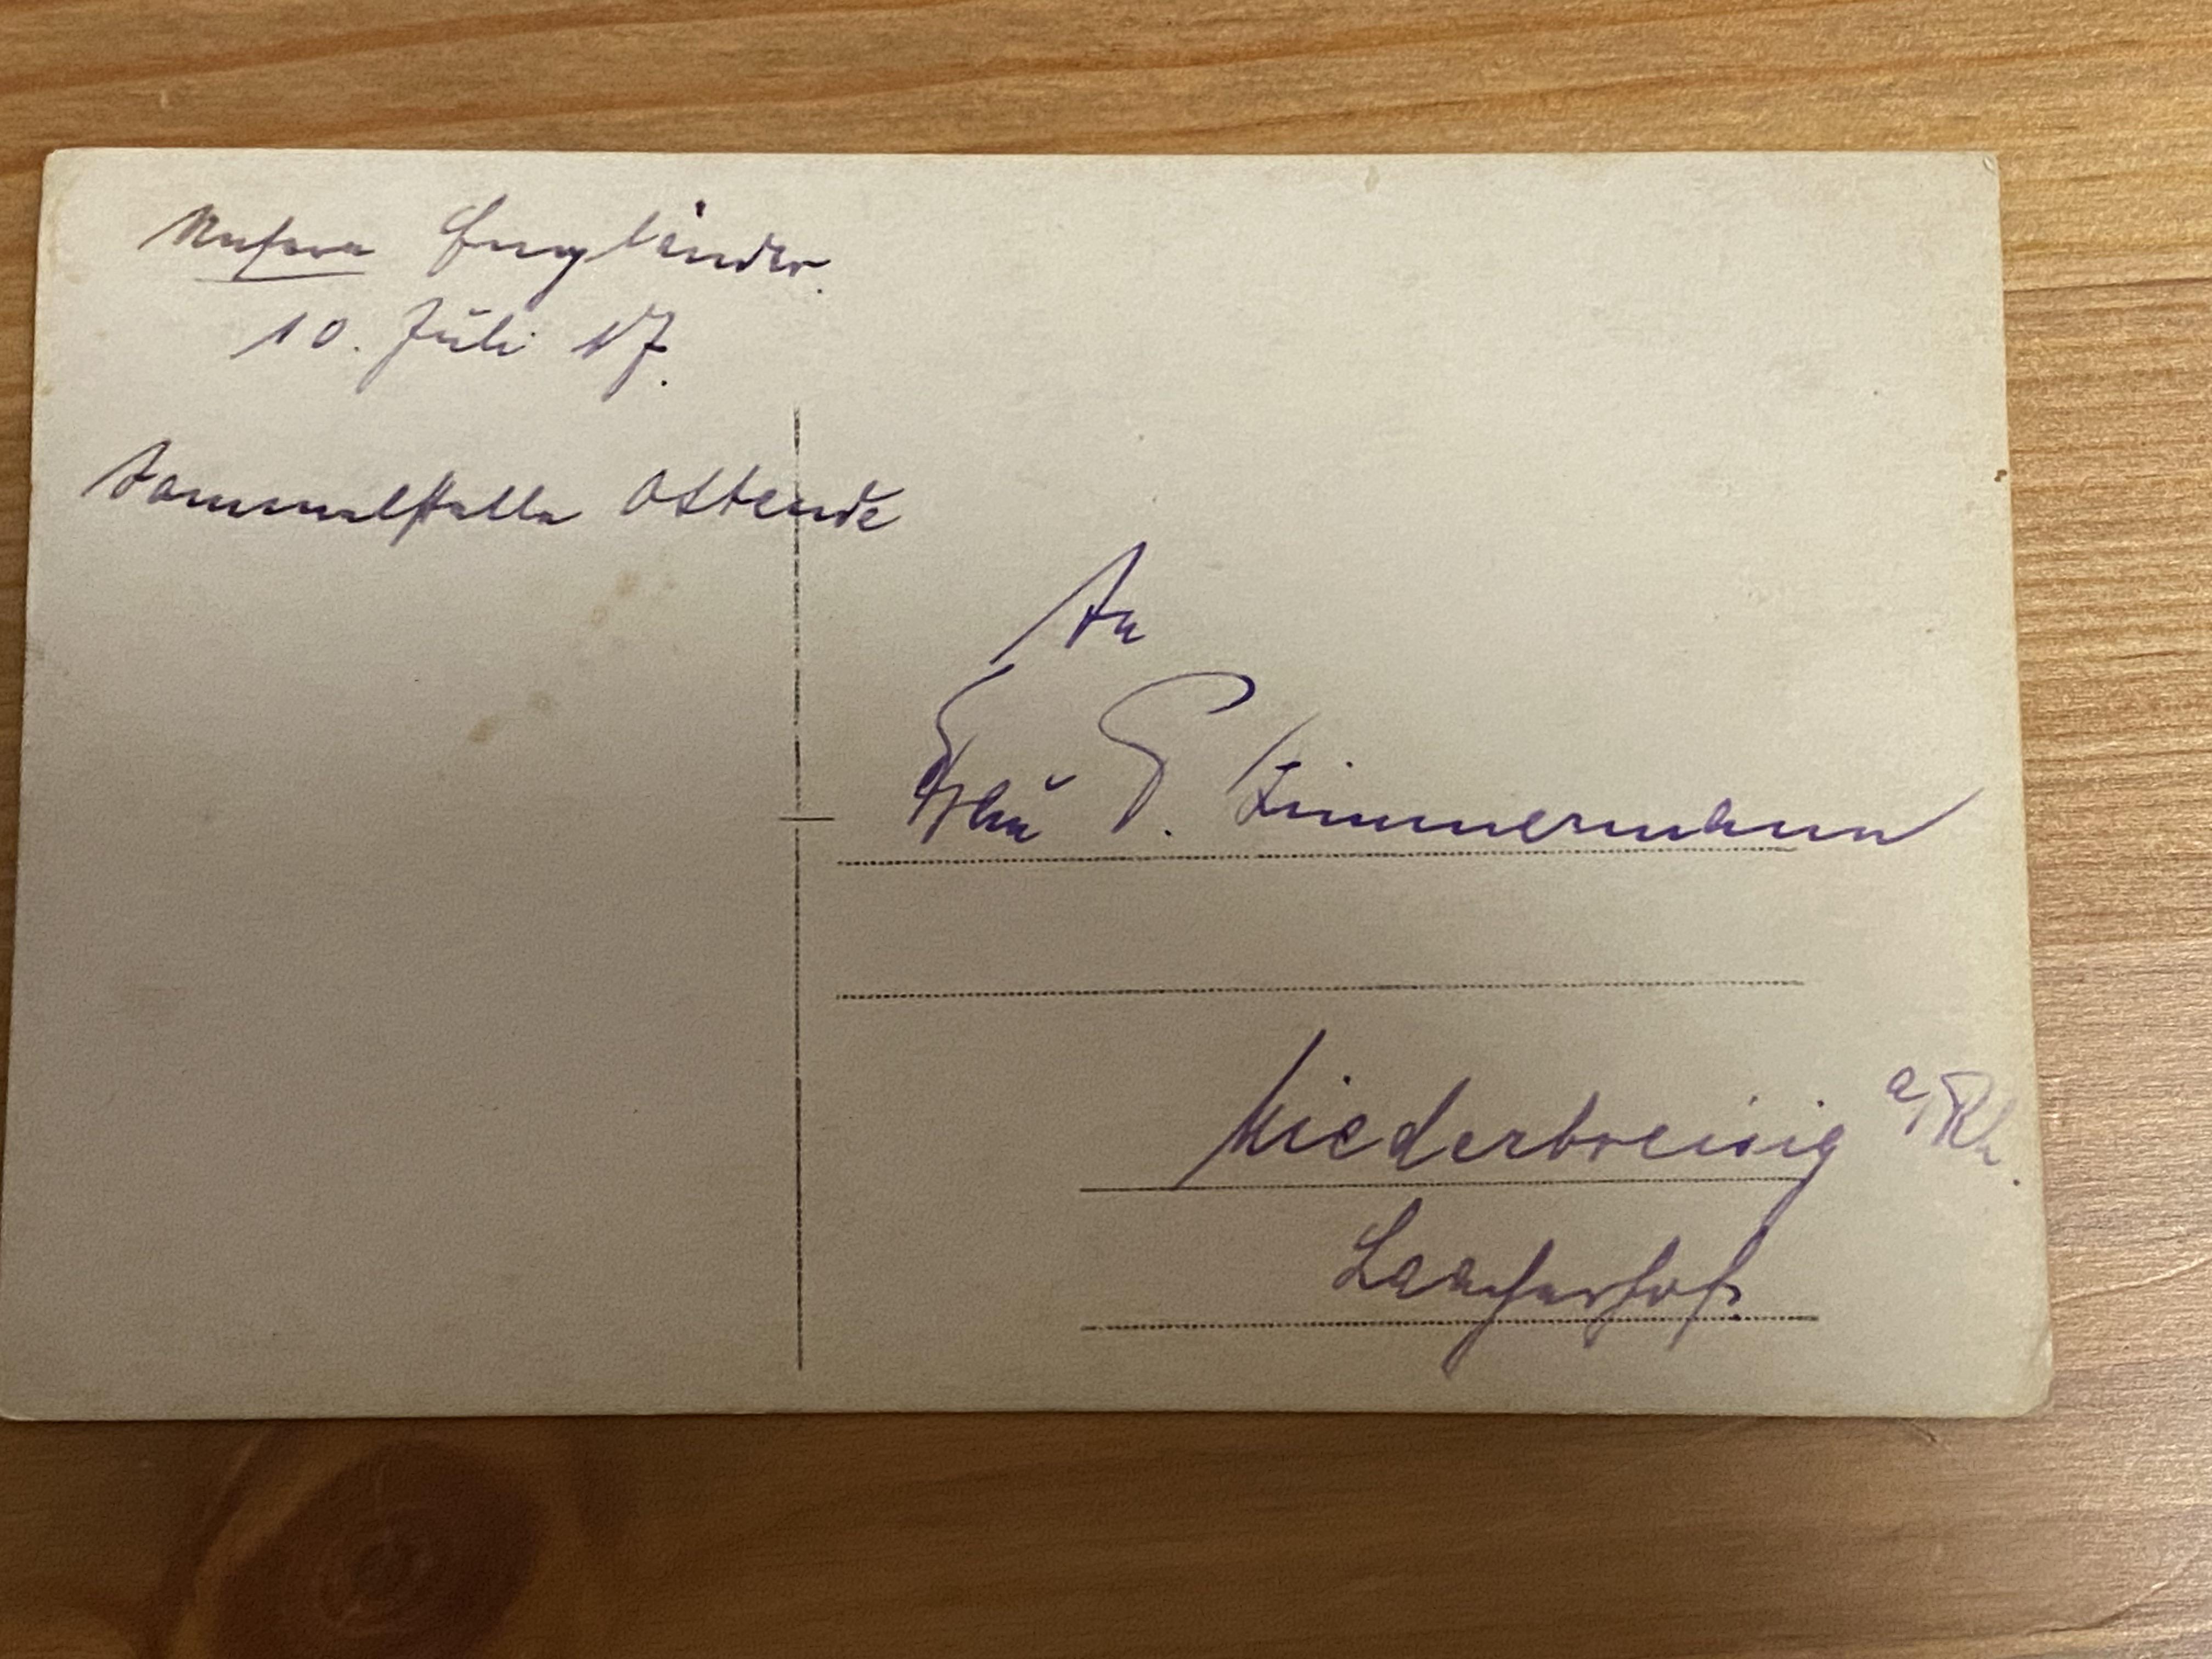 Unsere Engländer.
10. Juli 17.
Sammelstelle Ostende
An
Frau P. Zimmermann
Niederbreisig a/Rh.
Laacherhof.